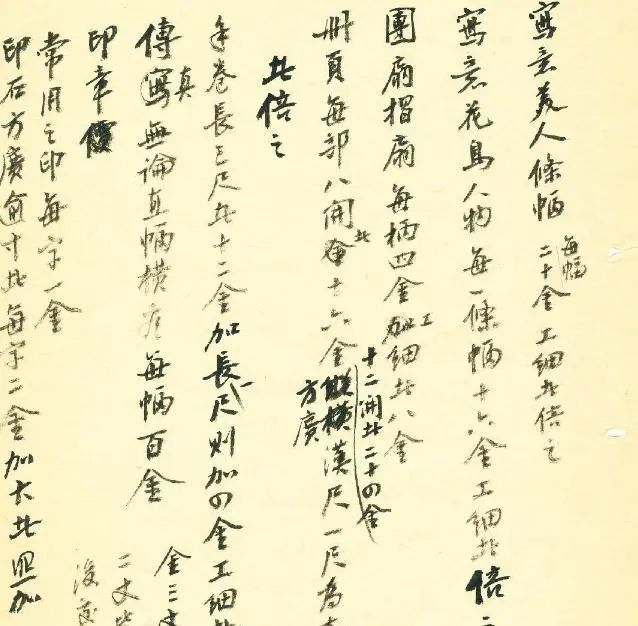 寫意美人條幅每幅二十金工細者倍之
寫意花鳥人物每一條幅十六金工細者倍之
團扇摺扇每柄四金工細者八金
十二開者二十四金
冊頁每部八開者十六金縱橫漢尺一尺為
方廣
者倍之
手卷長三尺者十二金加長一尺則加四金工細者
傳寫真無論直幅橫看每幅百金
金三丈
二丈
印章價
常用之印每字一金
印石方廣逾寸者每字二金加大者照加